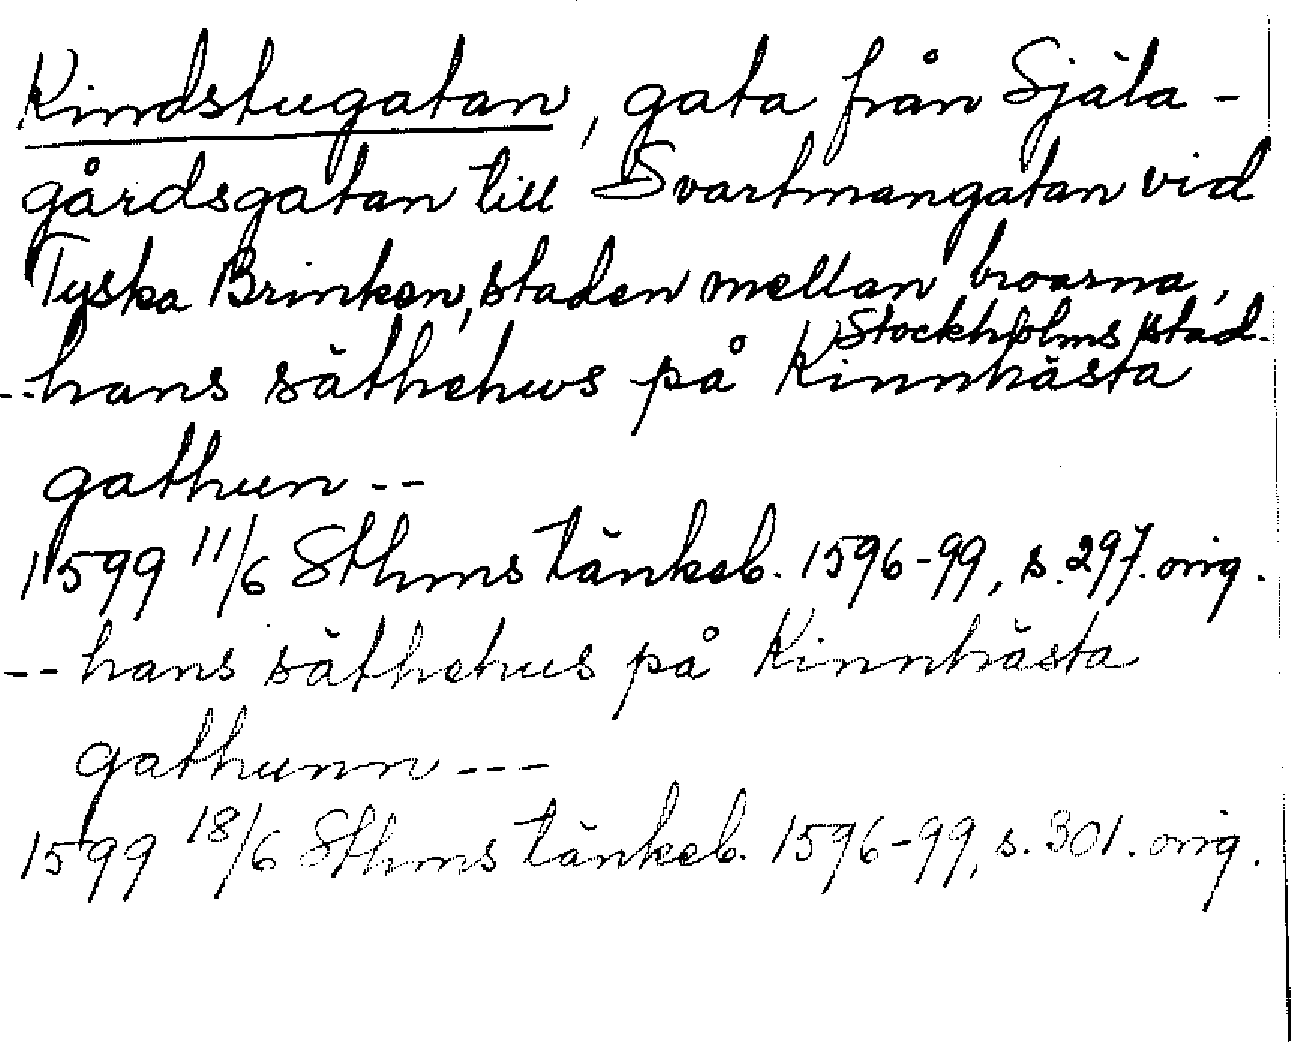 Kindstugatan, gata från Själa-
gårdsgatan till Svartmangatan vid
Tyska Brinken, staden mellan broarna,
Stockholms stad.
--hans säthehws på Kinnhästa
gathun --
1599 11/6 Sthms tänkeb. 1596-99, s. 297. orig.
-- hans säthehus på Kinnhästa
gathunn ---
1599 18/6 Sthms tänkeb. 1596-99, s. 301. orig.